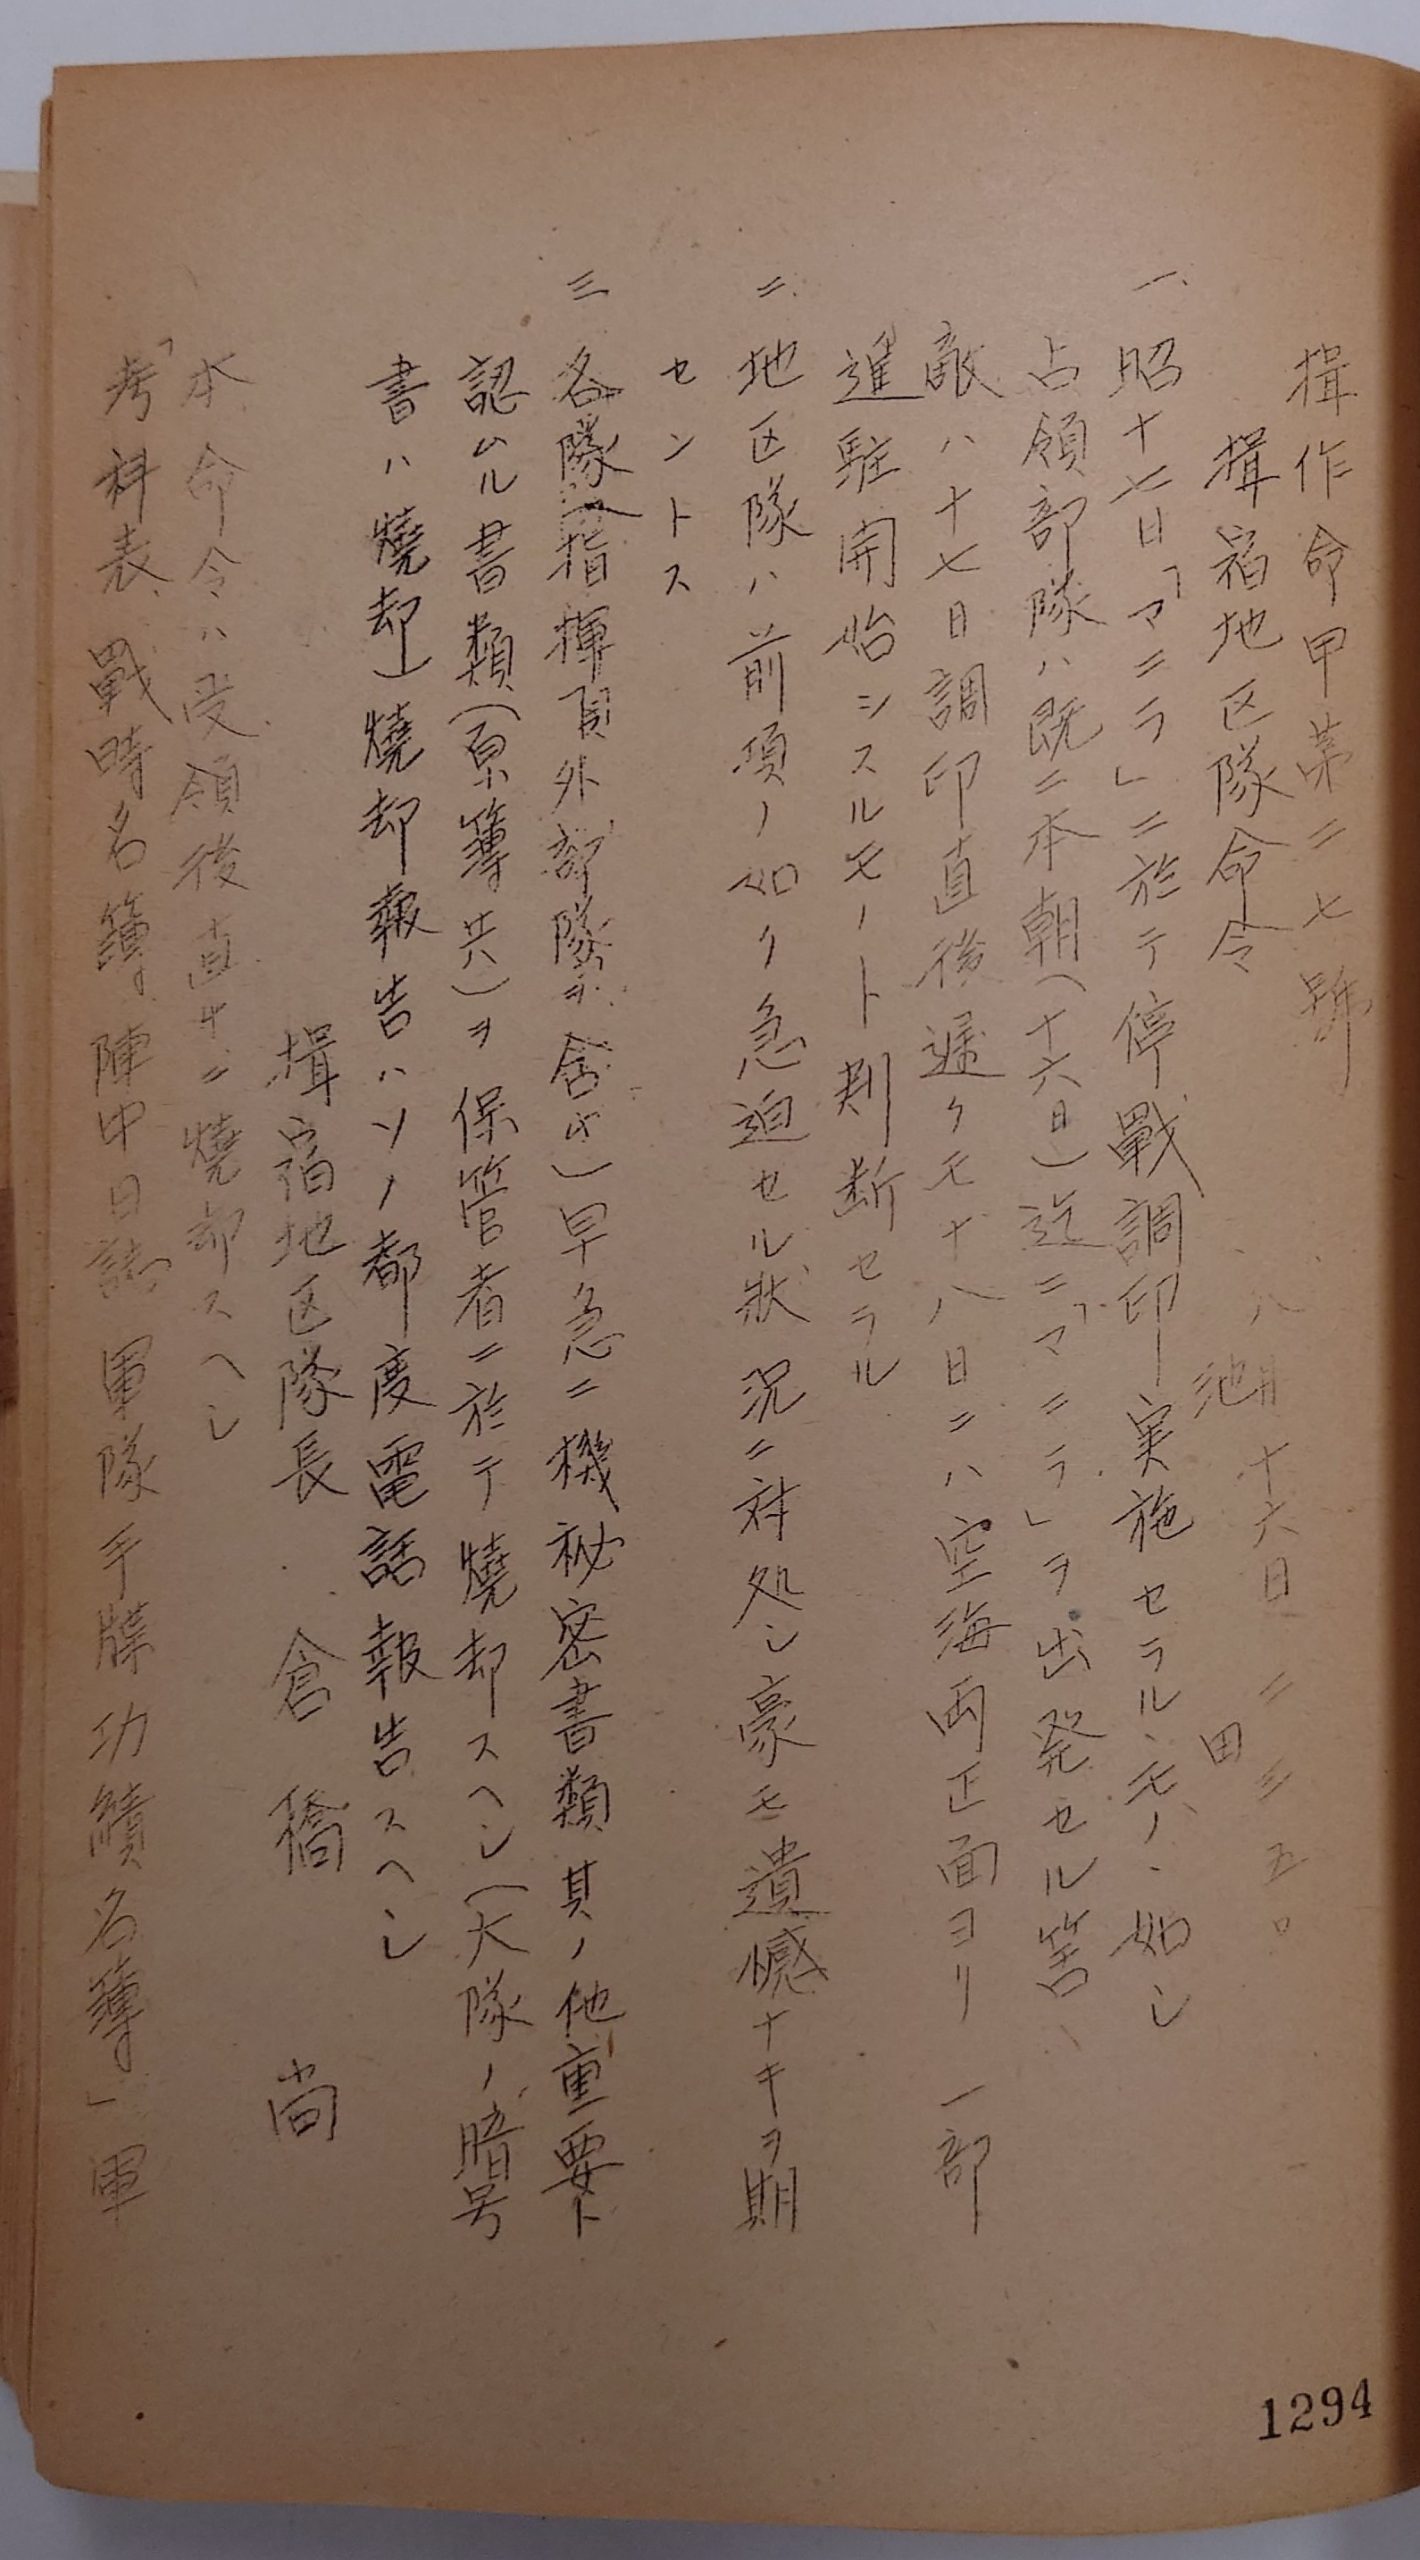 揖作命甲第二七號
八月十六日 二三五〇
揖宿地区隊命令
池田
一、昭十七日「マニラ」ニ於テ停戰調印実施セラルヽモノヽ如シ
占領部隊ハ既ニ本朝(十六日)迄ニ「マニラ」ヲ出発セル筈
敵ハ十七日調印直後遅クモ十八日ニハ空海両正面ヨリ一部
進駐開始シスルモノト判断セラル
二、地区隊ハ前項ノ如ク急迫セル狀況ニ対処シ豪モ遺憾ナキヲ期
セントス
三 各隊(指揮下外部隊ヲ含ム)早急ニ機秘密書類其ノ他重要ト
認ムル書類(原簿共)ヲ保管者ニ於テ燒却スヘシ(大隊ノ暗号
書ハ燒却)燒却報告ハソノ都度電話報告スヘシ
揖宿地区隊長 倉橋 尚
本命令ハ受領後直チニ燒却スヘシ
「考科表、戰時名簿陣中日誌軍隊手牒功績名簿」軍
1294